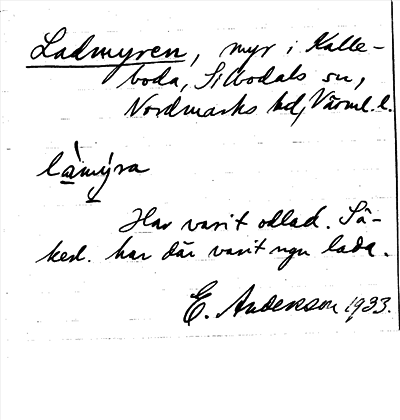 Ladmyren, myr i Kalle-
boda, Silbodals sn,
Nordmarks hd, Värml. l.
là̱mý̱ra
Har varit odlad. Sä-
kerl. har där varit ngn lada.
E. Anderson 1933.